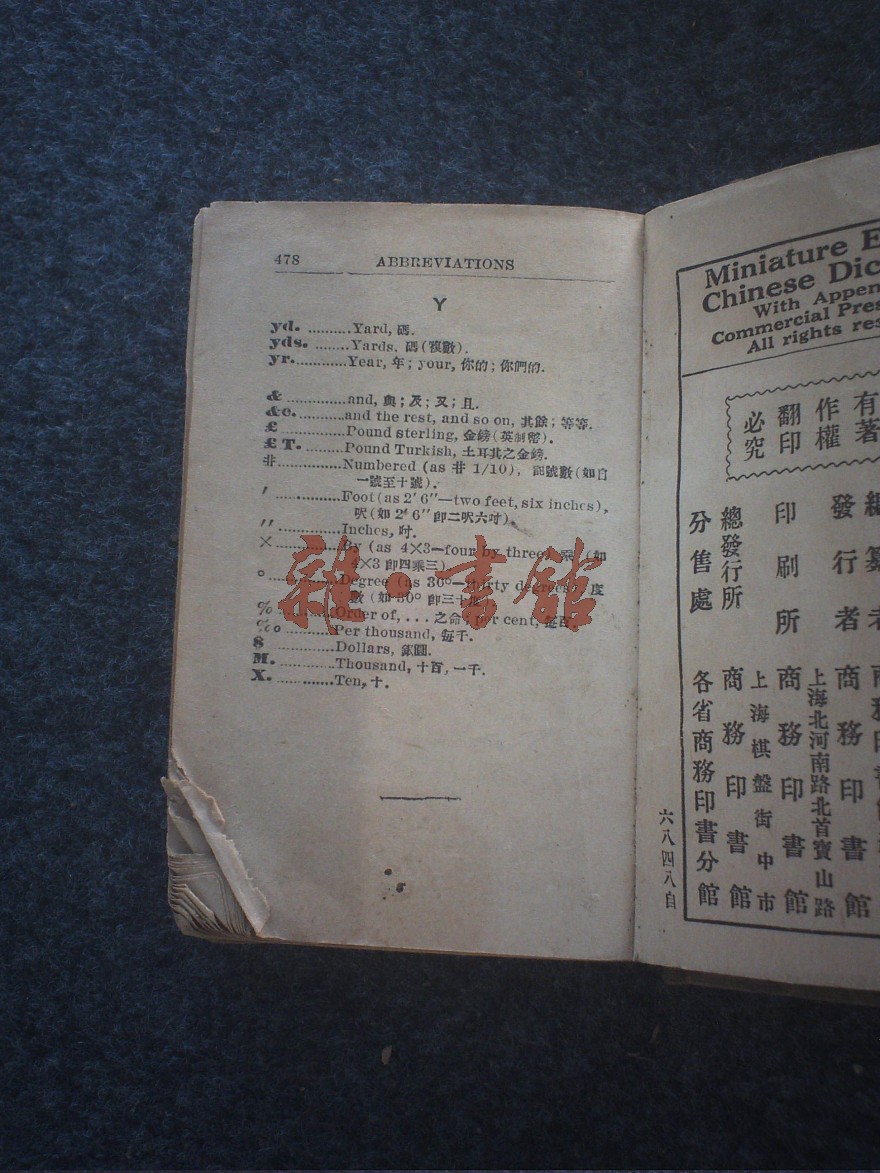 478 ABBREVIATIONS
Y
yd. ..........Yard, 碼.
yds. ........Yards, 碼(複數).
yr. ............Year, 年; your, 你的; 你們的.
& ...............and, 與; 及; 又; 且.
&c. ............and the rest, and so on, 其餘; 等等.
£ ...............Pound sterling, 金鎊(英制幣).
£ T. ..........Pound Turkish, 土耳其之金鎊.
# ...............Numbered (as # 1/10), 記號數(如自
一號至十號).
′ ...............Foot (as 2′ 6″—two feet, six inches),
呎(如 2′ 6″ 卽二呎六吋).
″ ...............Inches, 吋.
× ...............By (as 4×3—four by three), 乘 (如
4×3 卽四乘三).
° ...............Degree (as 30°—thirty degrees), 度
數 (如 30° 卽三十度).
% .............Order of, ... 之命; per cent, 每百.
‰ ...........Per thousand, 每千.
$ ...............Dollars, 銀圓.
M. .............Thousand, 十百, 一千.
X. .............Ten, 十.
雜書館
Miniature E
Chinese Dic
With Appen
Commercial Pres
All rights res
有著
作權
翻印
必究
發行者 商務印書館
上海北河南路北首寶山路
印刷所 商務印書館
上海棋盤街中市
總發行所 商務印書館
分售處 各省商務印書分館
六八四八自